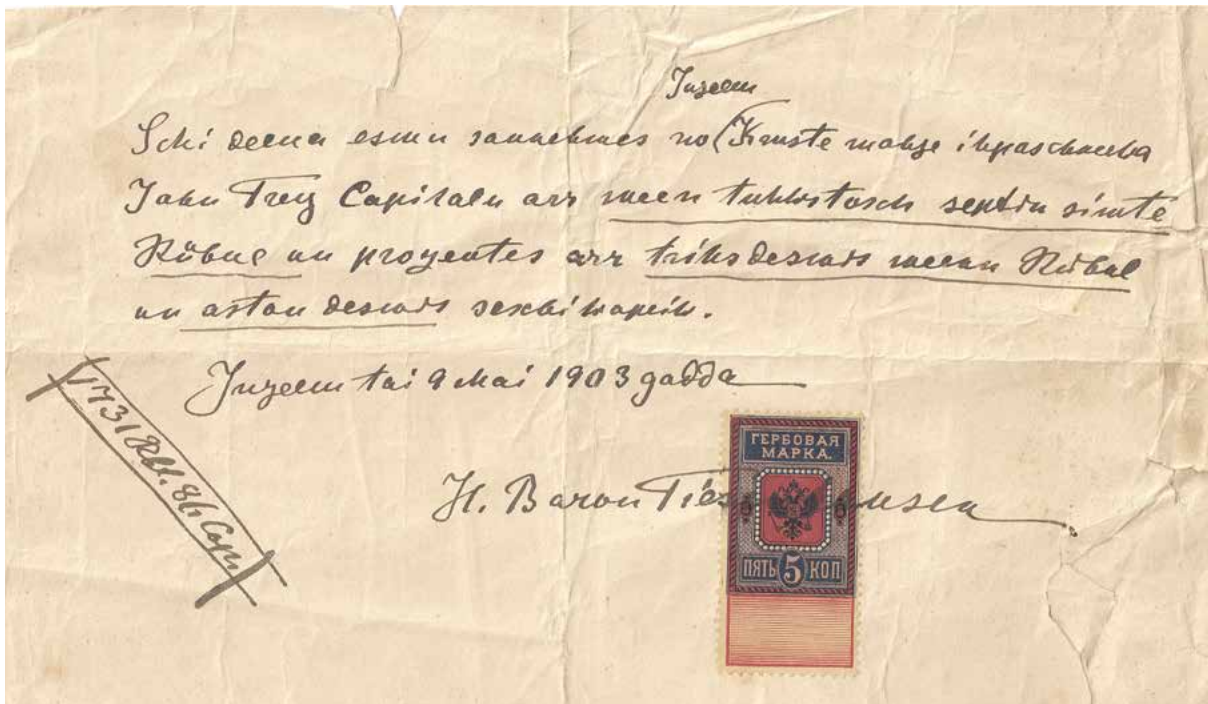 Inzeem
Schi deena esmu sannehmes no (Kruste mahje ihpaschneeka
Jahn Frey Capitalu arr weenu tuhkstosch septiu simte
Rübul un prozentes arr trihsdesmits weenu Rübul
un astondesmits seschi kapeik.
Inzeem tai 9 Mai 1903 gadda
1731 Rbl. 86 Cop
ГЕРБОВАЯ
МАРКА.
H. Baron Tiesenhausen
5 5
ПЯТЬ 5 КОП